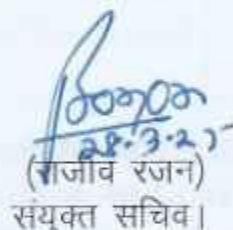 28.3.25
(राजीव रंजन)
संयुक्त सचिव।